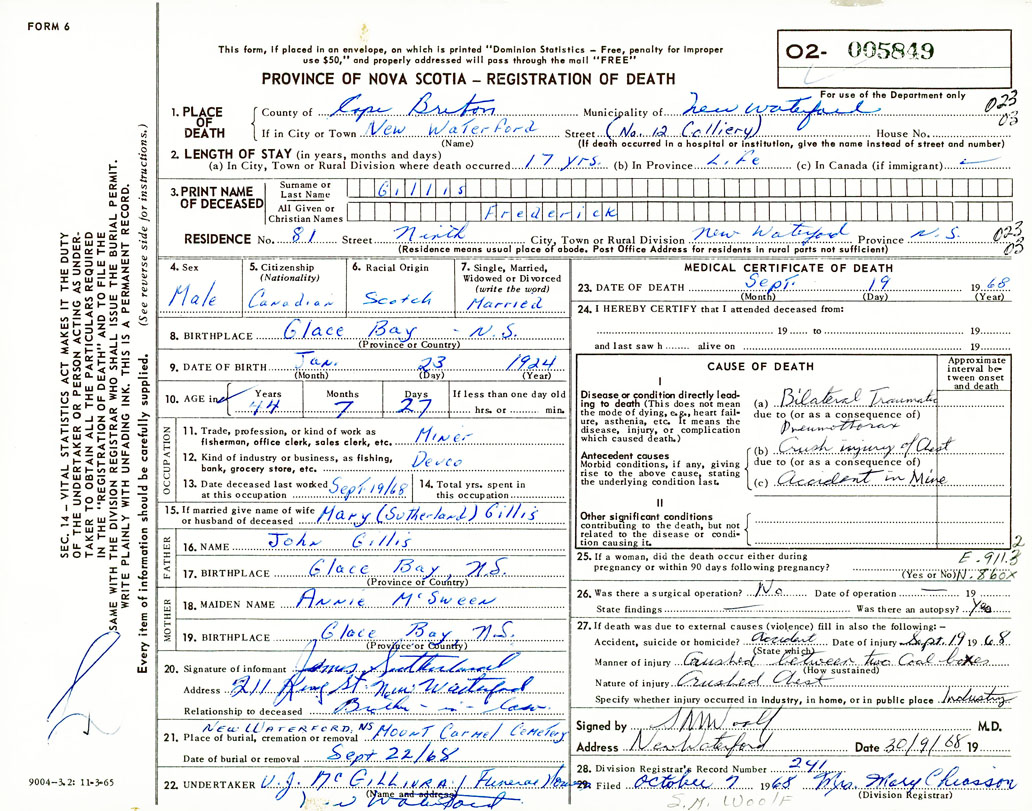 FORM 6
This form, if placed in an envelope, on which is printed "Dominion Statistics – Free, penalty for improper
use $50," and properly addressed will pass through the mail "FREE"
PROVINCE OF NOVA SCOTIA – REGISTRATION OF DEATH
O2- 005849
For use of the Department only
023
03
1. PLACE OF DEATH
County of Cape Breton Municipality of New Waterford
If in City or Town New Waterford Street (No. 12 Colliery) House No.
(Name) (If death occurred in a hospital or institution, give the name instead of street and number)
2. LENGTH OF STAY (in years, months and days)
(a) In City, Town or Rural Division where death occurred 17 yrs. (b) In Province Life (c) In Canada (if immigrant) –
3. PRINT NAME OF DECEASED
Surname or Last Name Gillis
All Given or Christian Names Frederick
RESIDENCE No. 81 Street Ninth City, Town or Rural Division New Waterford Province N.S.
(Residence means usual place of abode. Post Office Address for residents in rural parts not sufficient)
023
03
4. Sex Male
5. Citizenship (Nationality) Canadian
6. Racial Origin Scotch
7. Single, Married, Widowed or Divorced (write the word) Married
8. BIRTHPLACE Glace Bay - N.S.
(Province or Country)
9. DATE OF BIRTH Jan. 23 1924
(Month) (Day) (Year)
10. AGE in Years 44 Months 7 Days 27 If less than one day old hrs. or min.
OCCUPATION
11. Trade, profession, or kind of work as fisherman, office clerk, sales clerk, etc. Miner
12. Kind of industry or business, as fishing, bank, grocery store, etc. Devco
13. Date deceased last worked at this occupation Sept 19/68
14. Total yrs. spent in this occupation
15. If married give name of wife or husband of deceased Mary (Sutherland) Gillis
FATHER
16. NAME John Gillis
17. BIRTHPLACE Glace Bay, N.S.
(Province or Country)
MOTHER
18. MAIDEN NAME Annie McSween
19. BIRTHPLACE Glace Bay N.S.
(Province or Country)
20. Signature of informant James Sutherland
Address 211 King St. New Waterford
Relationship to deceased Brother-in-law
NEW WATERFORD, NS
21. Place of burial, cremation or removal Mount Carmel Cemetery
Date of burial or removal Sept 22/68
22. UNDERTAKER V. J. McGillivray Funeral Home
(Name and address) New Waterford
MEDICAL CERTIFICATE OF DEATH
23. DATE OF DEATH Sept. 19 1968
(Month) (Day) (Year)
24. I HEREBY CERTIFY that I attended deceased from:
19 to 19
and last saw h alive on 19
CAUSE OF DEATH
Approximate interval between onset and death
I
Disease or condition directly leading to death (This does not mean the mode of dying, e.g., heart failure, asthenia, etc. It means the disease, injury, or complication which caused death.)
(a) Bilateral Traumatic
due to (or as a consequence of)
Pneumothorax
Antecedent causes
Morbid conditions, if any, giving rise to the above cause, stating the underlying condition last.
(b) Crush injury of Chest
due to (or as a consequence of)
(c) Accident in Mine
II
Other significant conditions contributing to the death, but not related to the disease or condition causing it.
2
25. If a woman, did the death occur either during pregnancy or within 90 days following pregnancy?
(Yes or No)
E.911.3
N.860X
26. Was there a surgical operation? No Date of operation — 19
State findings — Was there an autopsy? Yes
27. If death was due to external causes (violence) fill in also the following:–
Accident, suicide or homicide? Accident Date of injury Sept. 19 1968.
(State which)
Manner of injury Crushed between two Coal boxes
(How sustained)
Nature of injury Crushed Chest
Specify whether injury occurred in Industry, in home, or in public place Industry
Signed by S M Woolf M.D.
Address New Waterford Date 30/9/68 19
28. Division Registrar's Record Number 241
29. Filed October 7 1968 Mrs. Mary Chiasson
(Division Registrar)
S. M. WOOLF
SEC. 14 – VITAL STATISTICS ACT MAKES IT THE DUTY
OF THE UNDERTAKER OR PERSON ACTING AS UNDER-
TAKER TO OBTAIN ALL THE PARTICULARS REQUIRED
IN THE "REGISTRATION OF DEATH" AND TO FILE THE
SAME WITH THE DIVISION REGISTRAR WHO SHALL ISSUE THE BURIAL PERMIT.
WRITE PLAINLY WITH UNFADING INK. THIS IS A PERMANENT RECORD.
Every item of information should be carefully supplied. (See reverse side for instructions.)
9004-3.2: 11-3-65